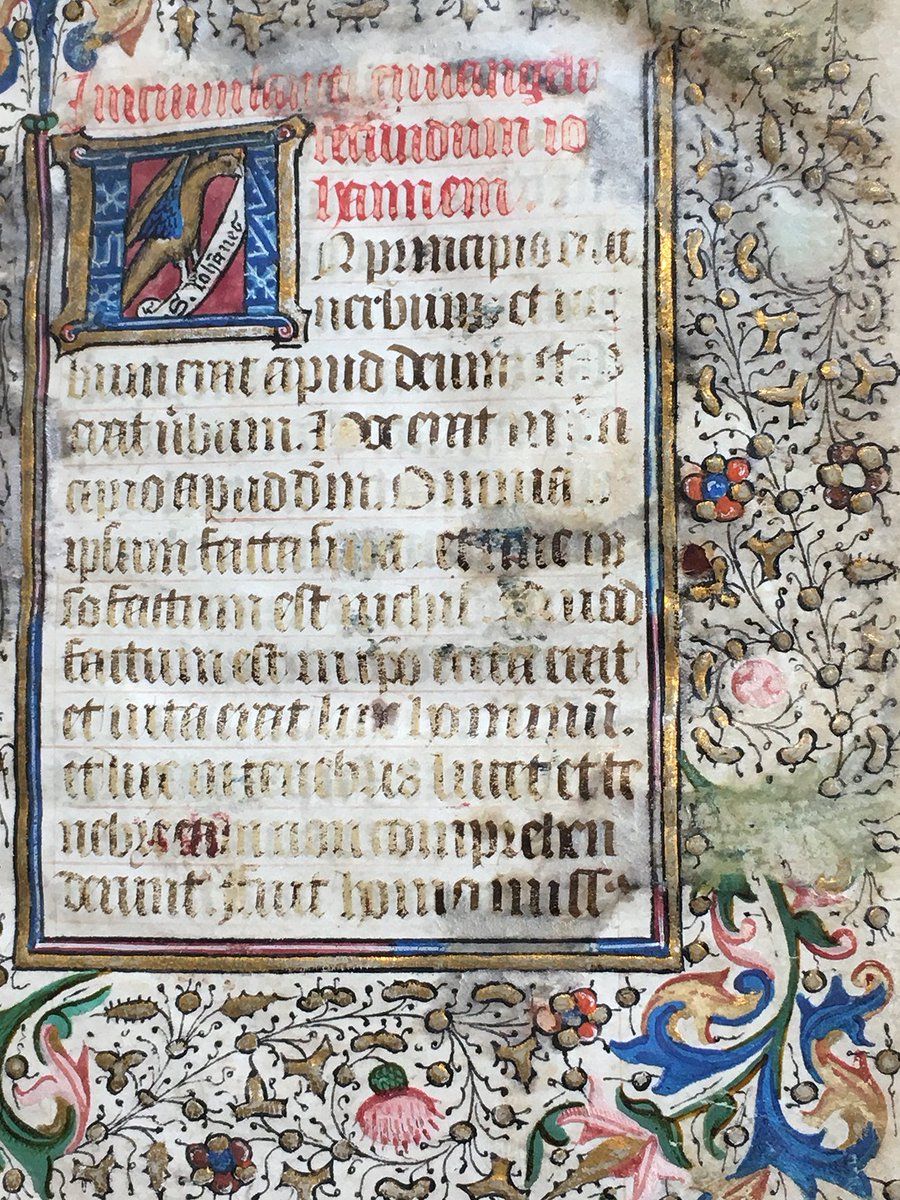 Inicium sancti euuangelii
secundum io
hannem
N principio erat
S. Iohannes
uerbum et uer
bum erat apud deum et d
erat ubum. Hoc erat in
cipio apud dm. Omnia
ipsum facta sunt et sine ip
so factum est nichil quod
factum est in ipo uita erat
et uita erat lux hominū.
et lux in tenebris lucet et te
nebre eam non comprehen
derunt. Fuit homo miss